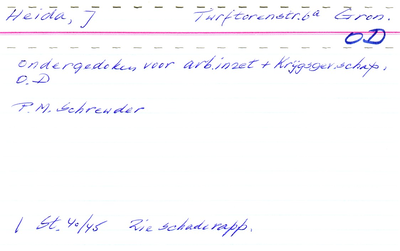 Heida, J Turftorenstr. 6a Gron.
OD
ondergedoken voor arb.inzet + Krijgsgev.schap.
O.D
P.M. Schreuder
1 St. 40/45 Zie schaderapp.